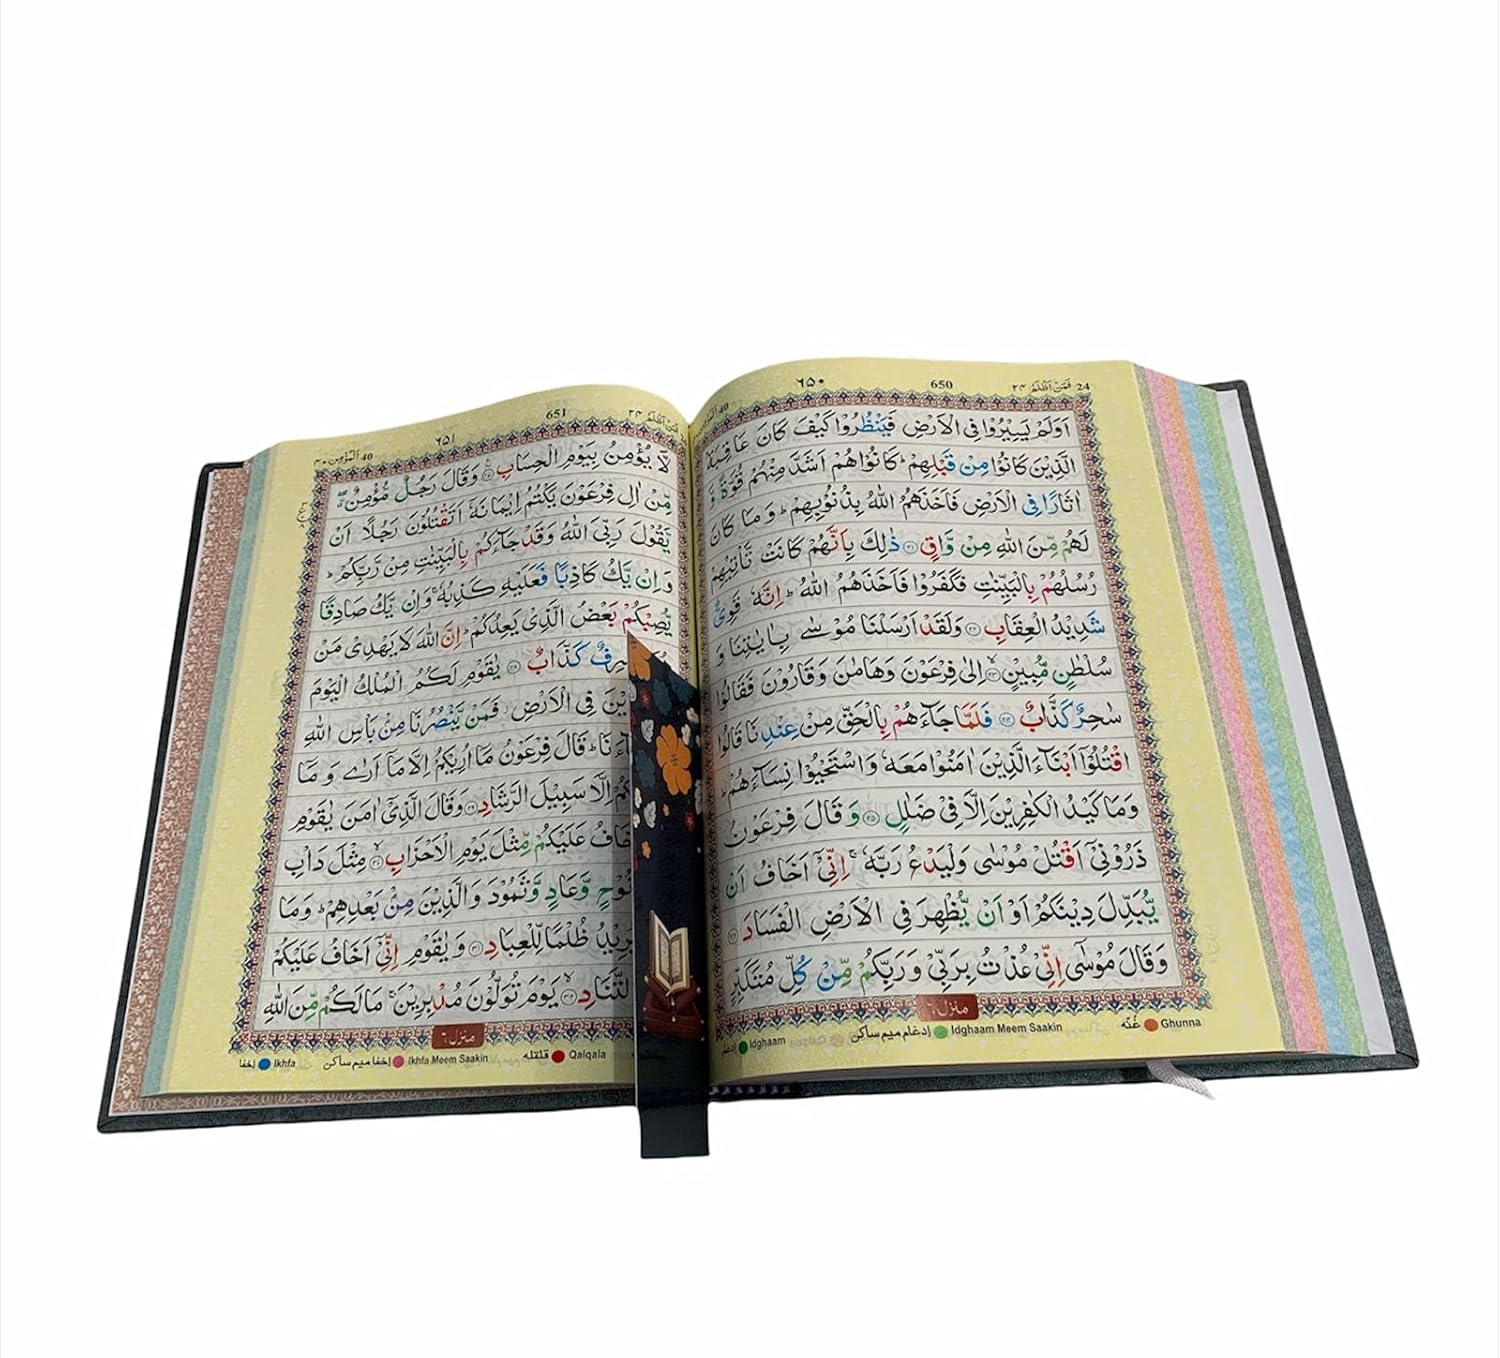 ٦٥٠ 650 فَمَنْ اَظْلَمُ ٢٤ 24
40
اَوَلَمْ يَسِيْرُوْا فِى الْاَرْضِ فَيَنْظُرُوْا كَيْفَ كَانَ عَاقِبَةُ
الَّذِيْنَ كَانُوْا مِنْ قَبْلِهِمْ ؕ كَانُوْا هُمْ اَشَدَّ مِنْهُمْ قُوَّةً وَّ
اٰثَارًا فِى الْاَرْضِ فَاَخَذَهُمُ اللّٰهُ بِذُنُوْبِهِمْ ؕ وَمَا كَانَ
لَهُمْ مِّنَ اللّٰهِ مِنْ وَّاقٍ ﴿۲۱﴾ ذٰلِكَ بِاَنَّهُمْ كَانَتْ تَّاْتِيْهِمْ
رُسُلُهُمْ بِالْبَيِّنٰتِ فَكَفَرُوْا فَاَخَذَهُمُ اللّٰهُ ؕ اِنَّهٗ قَوِىٌّ
شَدِيْدُ الْعِقَابِ ﴿۲۲﴾ وَلَقَدْ اَرْسَلْنَا مُوْسٰى بِاٰيٰتِنَا وَ
سُلْطٰنٍ مُّبِيْنٍ ﴿۲۳﴾ اِلٰى فِرْعَوْنَ وَهَامٰنَ وَقَارُوْنَ فَقَالُوْا
سٰحِرٌ كَذَّابٌ ﴿۲۴﴾ فَلَمَّا جَآءَهُمْ بِالْحَقِّ مِنْ عِنْدِنَا قَالُوا
اقْتُلُوْۤا اَبْنَآءَ الَّذِيْنَ اٰمَنُوْا مَعَهٗ وَاسْتَحْيُوْا نِسَآءَهُمْ ؕ
وَمَا كَيْدُ الْكٰفِرِيْنَ اِلَّا فِىْ ضَلٰلٍ ﴿۲۵﴾ وَقَالَ فِرْعَوْنُ
ذَرُوْنِىْۤ اَقْتُلْ مُوْسٰى وَلْيَدْعُ رَبَّهٗ ۚ اِنِّىْۤ اَخَافُ اَنْ
يُّبَدِّلَ دِيْنَكُمْ اَوْ اَنْ يُّظْهِرَ فِى الْاَرْضِ الْفَسَادَ ﴿۲۶﴾
وَقَالَ مُوْسٰۤى اِنِّىْ عُذْتُ بِرَبِّىْ وَرَبِّكُمْ مِّنْ كُلِّ مُتَكَبِّرٍ
منزل ٦
ادغام Idghaam إدغام ميم ساكن Idghaam Meem Saakin غُنّه Ghunna
651 فَمَنْ اَظْلَمُ ٢٤
٦٥١ اَلْمُؤْمِن ٤٠ 40
لَّا يُؤْمِنُ بِيَوْمِ الْحِسَابِ ﴿۲۷﴾ وَقَالَ رَجُلٌ مُّؤْمِنٌ ۖ
مِّنْ اٰلِ فِرْعَوْنَ يَكْتُمُ اِيْمَانَهٗۤ اَتَقْتُلُوْنَ رَجُلًا اَنْ
يَّقُوْلَ رَبِّىَ اللّٰهُ وَقَدْ جَآءَكُمْ بِالْبَيِّنٰتِ مِنْ رَّبِّكُمْ ؕ
وَاِنْ يَّكُ كَاذِبًا فَعَلَيْهِ كَذِبُهٗ ۚ وَاِنْ يَّكُ صَادِقًا
يُّصِبْكُمْ بَعْضُ الَّذِىْ يَعِدُكُمْ ؕ اِنَّ اللّٰهَ لَا يَهْدِىْ مَنْ
كَذَّابٌ ﴿۲۸﴾ يٰقَوْمِ لَكُمُ الْمُلْكُ الْيَوْمَ
فِى الْاَرْضِ ۫ فَمَنْ يَّنْصُرُنَا مِنْۢ بَاْسِ اللّٰهِ
قَالَ فِرْعَوْنُ مَاۤ اُرِيْكُمْ اِلَّا مَاۤ اَرٰى وَمَاۤ
اِلَّا سَبِيْلَ الرَّشَادِ ﴿۲۹﴾ وَقَالَ الَّذِىْۤ اٰمَنَ يٰقَوْمِ
عَلَيْكُمْ مِّثْلَ يَوْمِ الْاَحْزَابِ ﴿۳۰﴾ مِثْلَ دَاْبِ
نُوْحٍ وَّعَادٍ وَّثَمُوْدَ وَالَّذِيْنَ مِنْۢ بَعْدِهِمْ ؕ وَمَا
ظُلْمًا لِّلْعِبَادِ ﴿۳۱﴾ وَيٰقَوْمِ اِنِّىْۤ اَخَافُ عَلَيْكُمْ
التَّنَادِ ﴿۳۲﴾ يَوْمَ تُوَلُّوْنَ مُدْبِرِيْنَ ۚ مَا لَكُمْ مِّنَ اللّٰهِ
منزل ٦
إخفا Ikhfa إخفا ميم ساكن Ikhfa Meem Saakin قلقله Qalqala